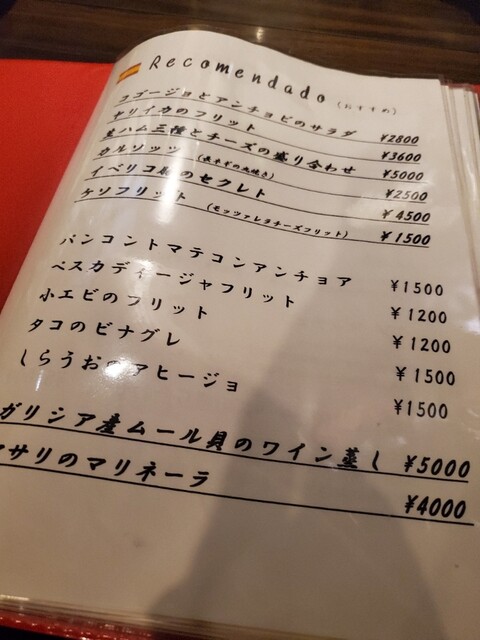 Recomendado (おすすめ)
コゴージョとアンチョビのサラダ ¥2800
ヤリイカのフリット ¥3600
生ハム三種とチーズの盛り合わせ ¥5000
カルソッツ ¥2500
イベリコ豚のセクレト ¥4500
ケソフリット (モッツァレラチーズフリット) ¥1500
パンコントマテコンアンチョア ¥1500
ペスカディージャフリット ¥1200
小エビのフリット ¥1200
タコのビナグレ ¥1500
しらうおのアヒージョ ¥1500
ガリシア産ムール貝のワイン蒸し ¥5000
アサリのマリネーラ ¥4000